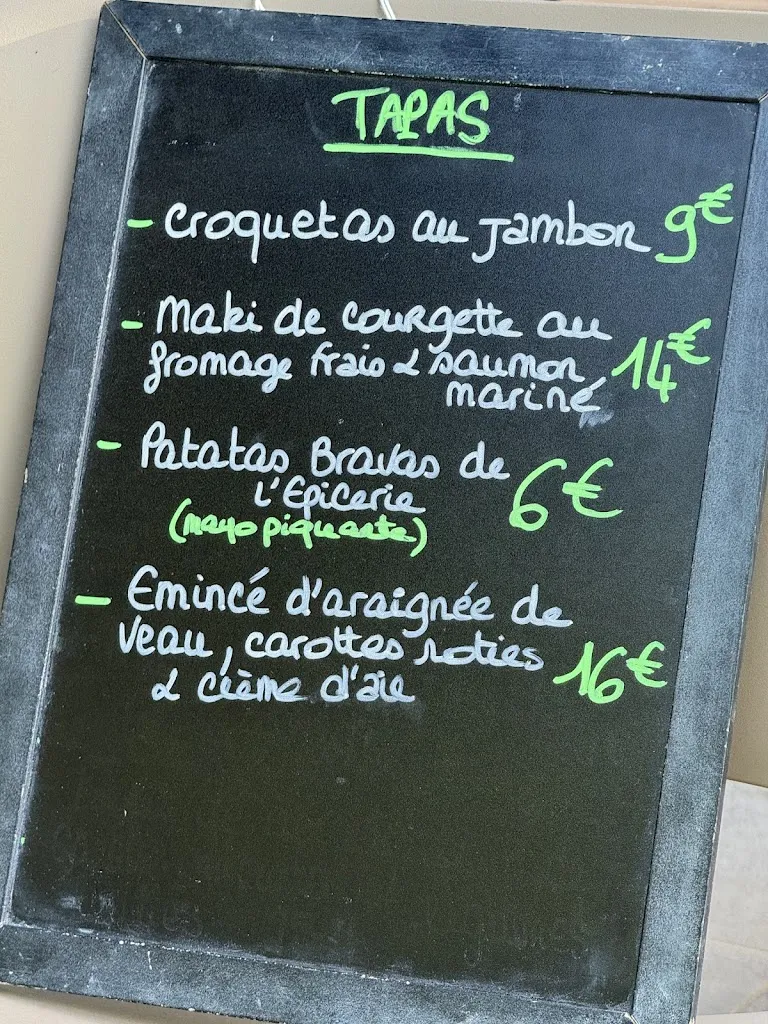 TAPAS
- Croquetas au Jambon 9€
- Maki de courgette au
fromage frais & saumon 14€
mariné
- Patatas Bravas de 6€
L'Epicerie
(mayo piquante)
- Emincé d'araignée de
veau, carottes roties 16€
& crème d'ail